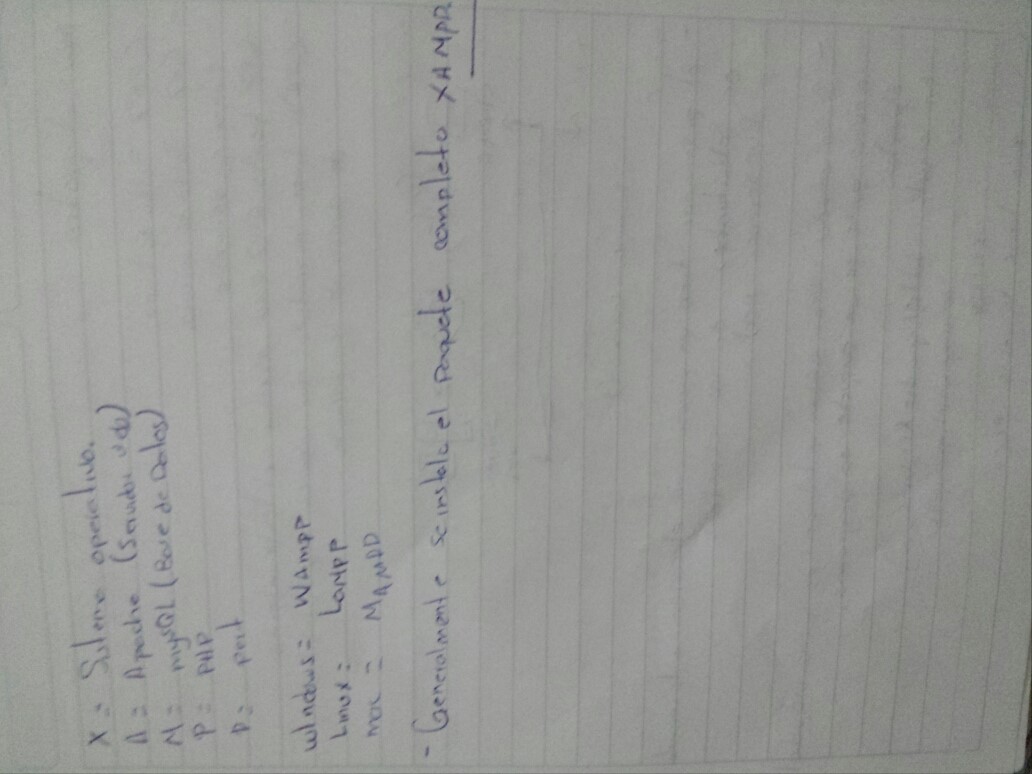 X = Sistema operativo.
A = Apache (Servidor web)
M = mySQL (Base de Datos)
P = PHP
P = perl
Windows = WAMPP
Linux = LAMPP
mac = MAMPP
- Generalmente se instala el paquete completo XAMPP